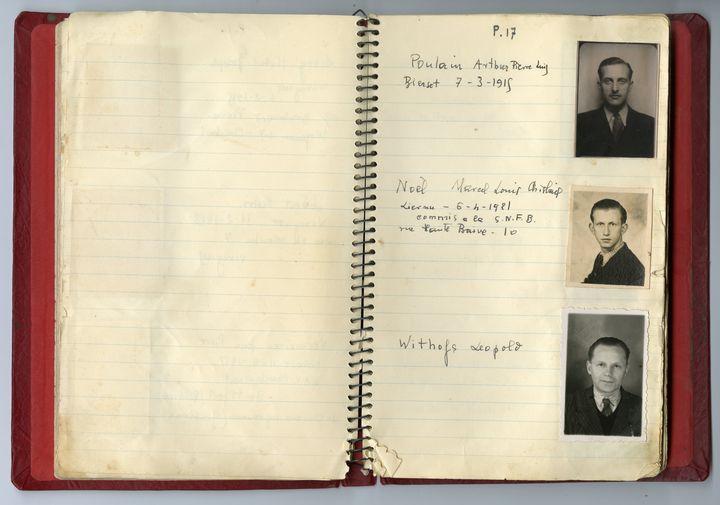 P.17
Poulain Arthur Pierre
Bierset 7-3-1915
Noël Marcel Louis
Lierneu - 6-4-1921
commis a la S.N.F.B.
rue Haute - 10
Withofs Leopold